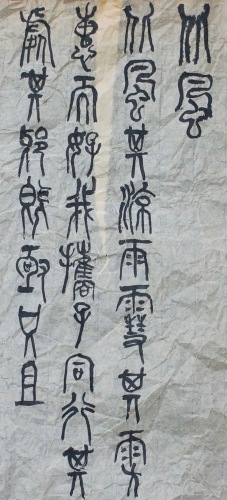 北風
北風其涼雨雪其雱
惠而好我攜手同行其
虛其邪既亟只且